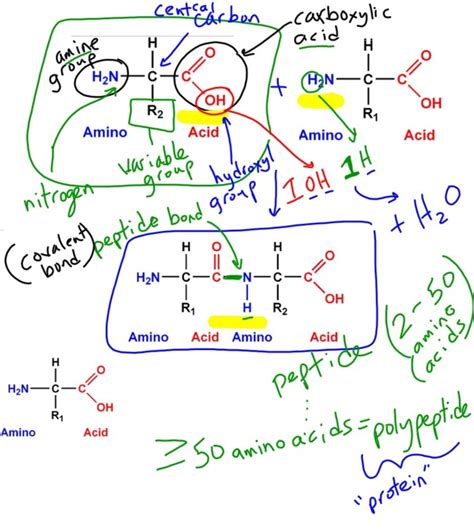 central
carbon
carboxylic
acid
amine
group
H
H₂N
C
O
OH
R₂
Amino
Acid
+
H
H₂N
C
O
OH
R₁
Amino
Acid
nitrogen
variable
group
hydroxyl
group
1 OH
1 H
+ H₂O
(covalent
bond)
peptide bond
H
O
H
O
H₂N
C
C
N
C
C
OH
R₁
H
R₂
Amino
Acid
Amino
Acid
peptide
(2-50
amino
acids)
H
H₂N
C
O
OH
R₁
Amino
Acid
≥50 amino acids = polypeptide
"protein"